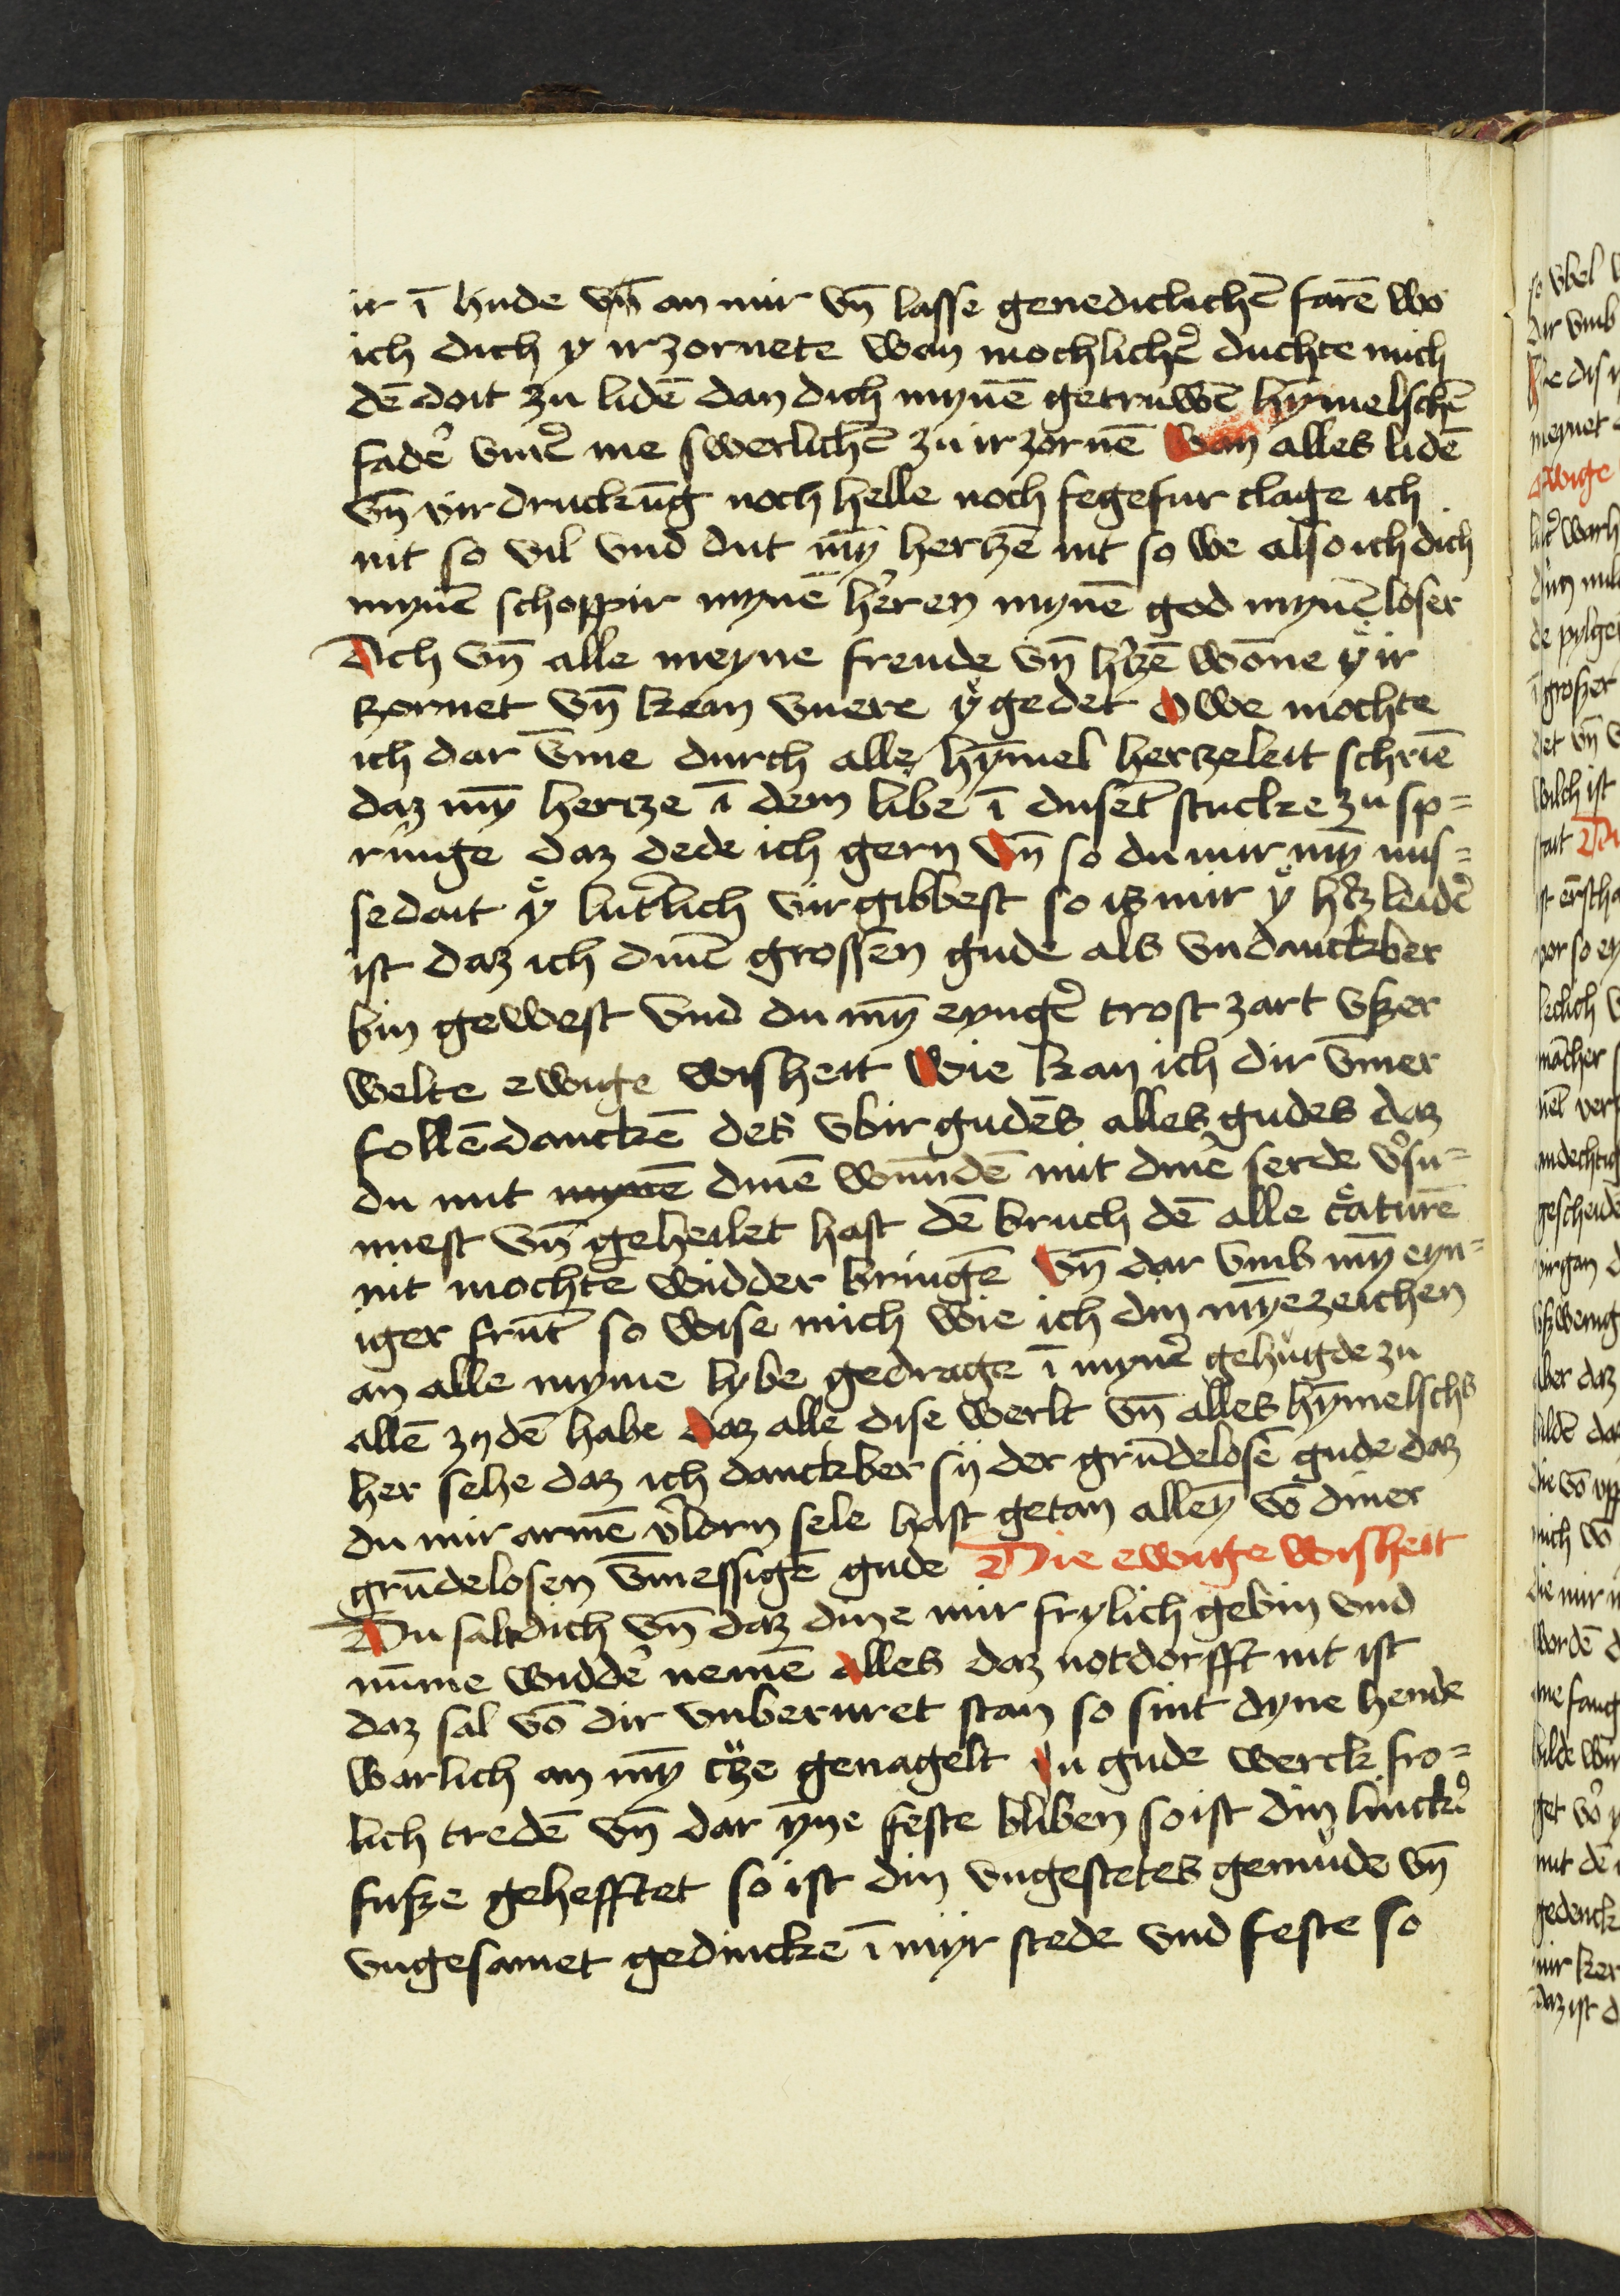 ir ī hude vñ an mir vñ lasse genediclichē farē wo
ich dich y irzornete wan mochlich̉ duchte mich
dē doit zu lidē dan dich mynē getruwē hȳmelschē
fad̉ vm̉ me swerlichē zu irzornē wan alles lidē
vñ vir druckūg noch helle noch fegefur clage ich
nit so vil vnd dut mȳ hertzē nit so we also ich dich
mynē schoppir mynē h̉ren mynē god mynē loser
Ach vñ alle meyne freude vñ h̉tzē wōne y ir
zornet vñ kean vnere y gedet O we mochte
ich dar v̄me durch alle hȳmel hertzeleit schriē
daz mȳ hertze ī dem libe ī duset̄ stucke zu sp=
runge daz dede ich gern vñ so du mir mȳ mis=
sedait y lut̉lich virgibbest so iz mir y h̉tz leid̉
ist daz ich dinē grossen gude als vndanckber
bin gewest vnd du mȳ eynig̉ trost zart vßer
welte ewige wisheit wie kan ich dir v̄mer
follē danckē des vbir gudēs alles gudes daz
du mit mynē dinē wundē mit din̉ serde v̉su=
nest vñ geheilet hast dē bruch dē alle c̉aturē
nit mochte widder bringē vñ dar vmb mȳ eyn=
iger frūt so wise mich wie ich din mȳezeichen
an alle myme lybe gedrage ī myn̉ gehugde zu
allē zydē habe daz alle dise werlt vñ alles hȳmelschs
her sehe daz ich danckber sy der grūdelosē gude daz
du mir armē v̉lorn sele hast getan alleȳ vō diner
grūdelosen v̄messigē gude Die ewige wisheit
Du salt dich vñ daz dine mir frylich gebin vnd
nūme widd̉ nemē alles daz notdorfft nit ist
daz sal vō dir vnberuret stan so sint dyne hende
warlich an mȳ c̉tze genagelt zu gude werck fro=
lich tredē vñ dar ȳne feste bliben so ist din linck̉
fusze gehefftet so ist din vngestetes gemude vñ
vngesamet gedincke ī myr stede vnd feste so